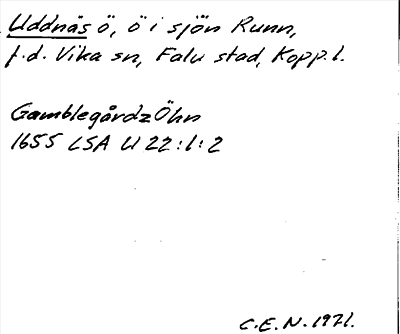 Uddnäs ö, ö i sjön Runn,
f.d. Vika sn, Falu stad, Kopp. l.
Gamblegårdz Öhn
1655 LSA U 22:1:2
C.E.N. 1971.